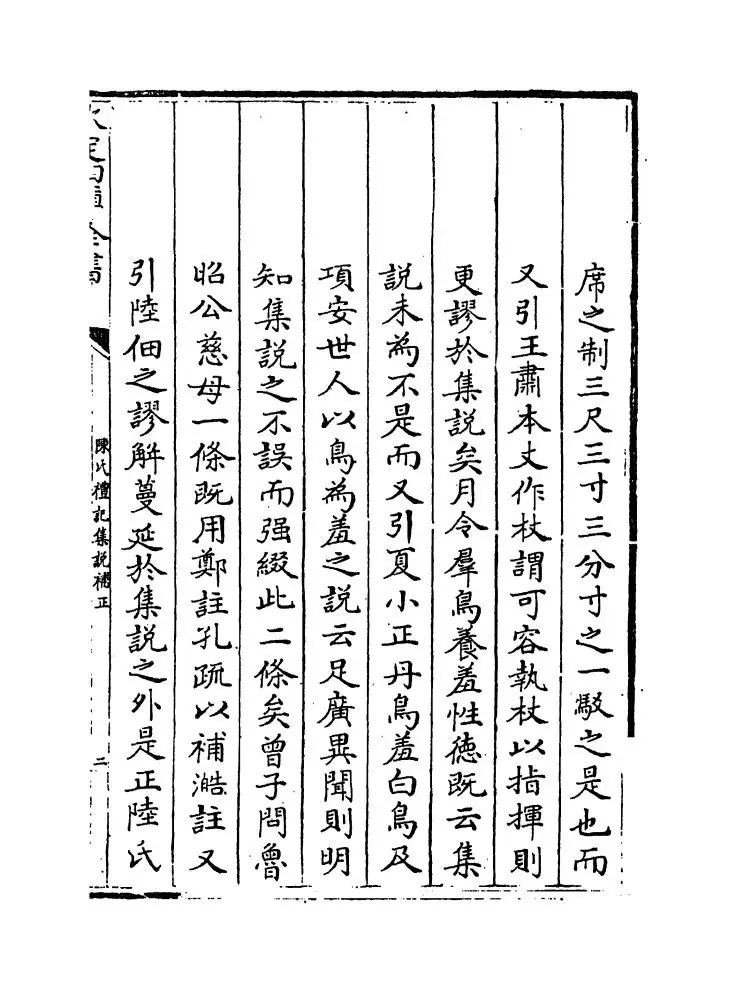 席之制三尺三寸三分寸之一駮之是也而
又引王肅本文作杖謂可容執杖以指揮則
更謬於集説矣月令羣鳥養羞性德既云集
説未為不是而又引夏小正丹鳥羞白鳥及
項安世人以鳥為羞之説云足廣異聞則明
知集説之不誤而强綴此二條矣曾子問魯
昭公慈母一條既用鄭註孔疏以補澔註又
引陸佃之謬解蔓延於集説之外是正陸氏
欽定四庫全書
陳氏禮記集説補正
二